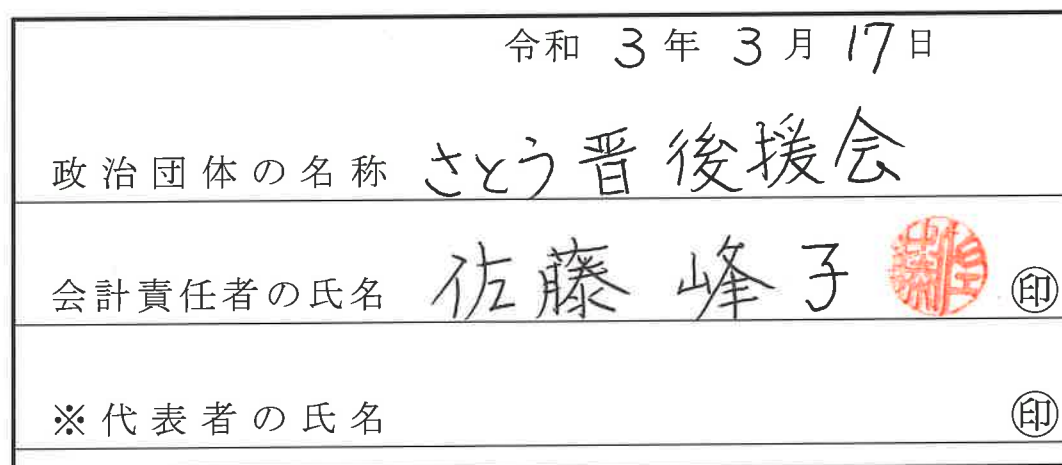 令和 3年 3月 17日
政治団体の名称 さとう晋後援会
会計責任者の氏名 佐藤 峰子 佐藤 ㊞
※代表者の氏名 ㊞